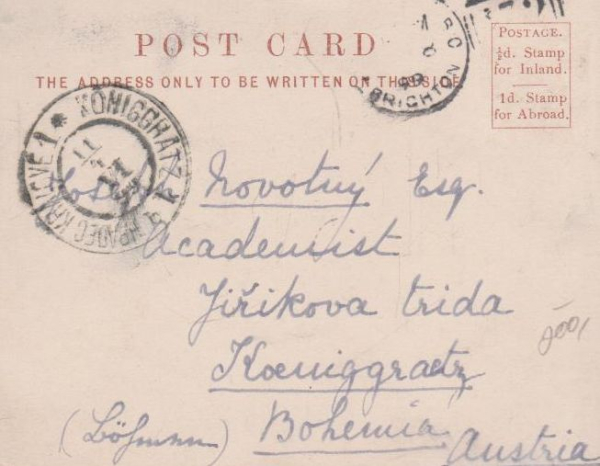 POST CARD
THE ADDRESS ONLY TO BE WRITTEN ON THIS SIDE
POSTAGE.
½d. Stamp
for Inland.
1d. Stamp
for Abroad.
BRIGHTON
KÖNIGGRÄTZ 1
HRADEC KRÁLOVÉ 1
11
Novotný Esq.
Academist
Jiříkova trida
Kœniggraetz
Bohemia
(Böhmen)
Austria